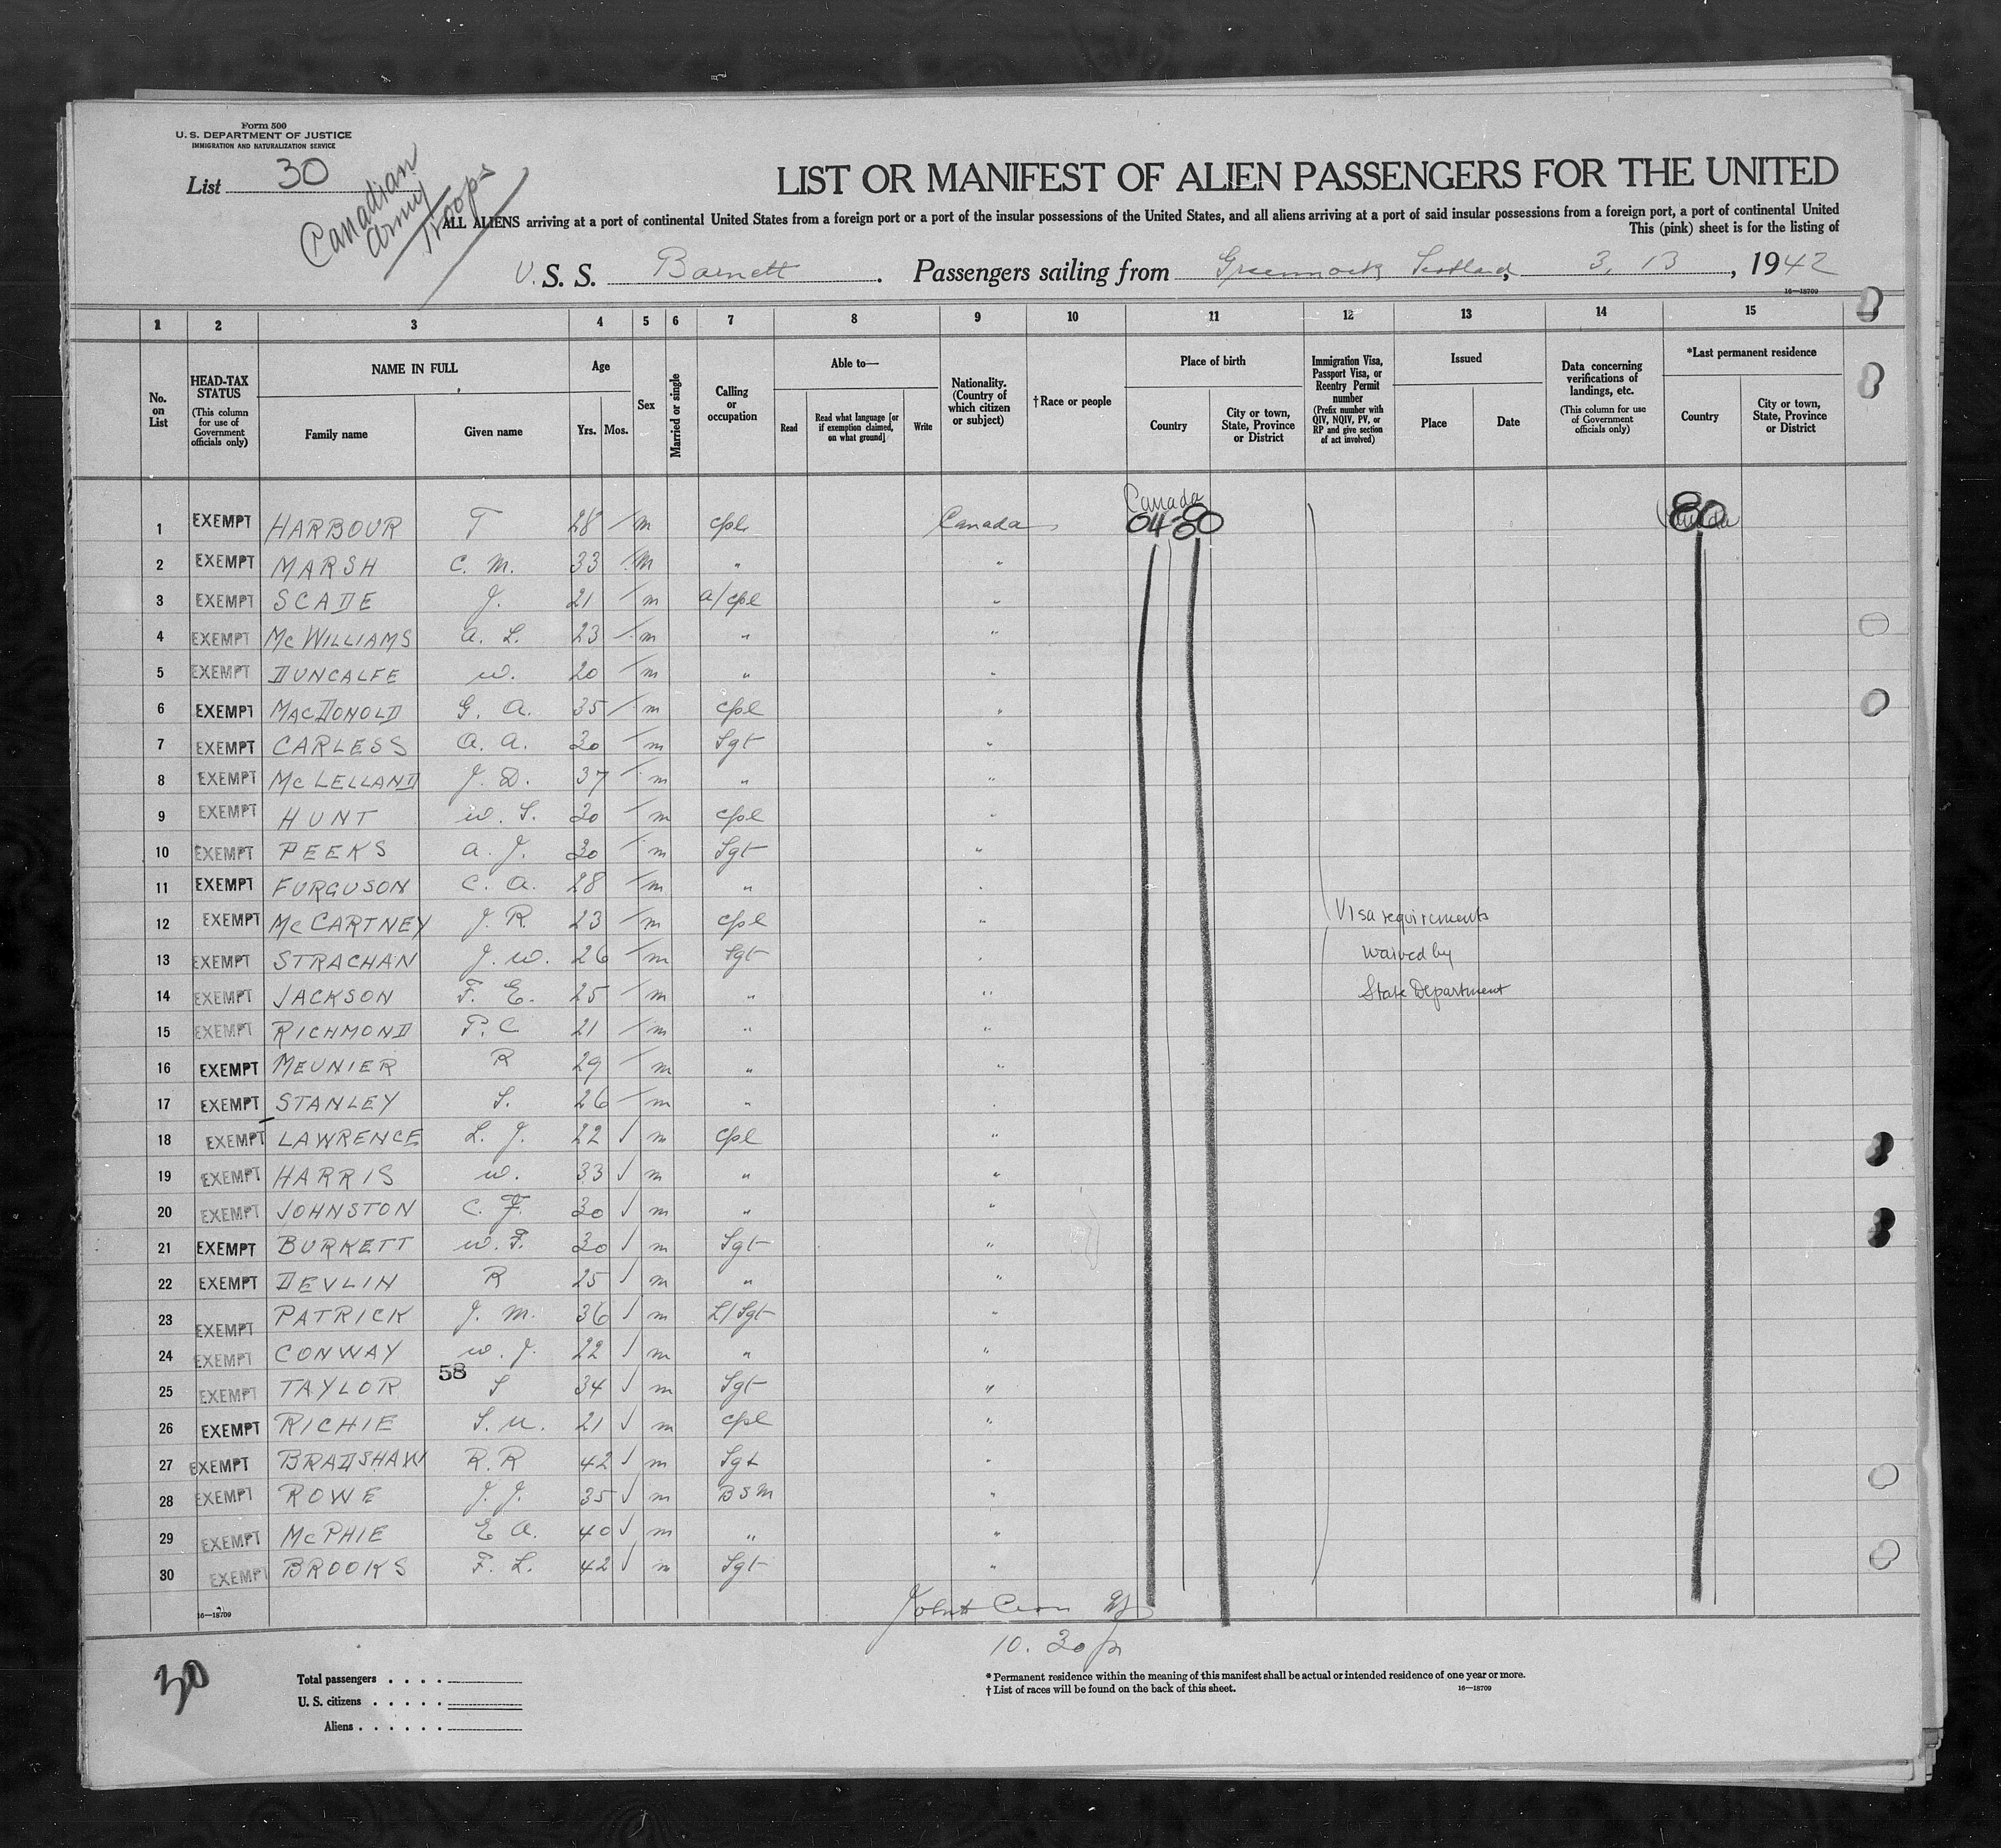 Form 500
U. S. DEPARTMENT OF JUSTICE
IMMIGRATION AND NATURALIZATION SERVICE
List 30
Canadian
Army
Troops
LIST OR MANIFEST OF ALIEN PASSENGERS FOR THE UNITED
ALL ALIENS arriving at a port of continental United States from a foreign port or a port of the insular possessions of the United States, and all aliens arriving at a port of said insular possessions from a foreign port, a port of continental United
This (pink) sheet is for the listing of
U. S. S. Barnett. Passengers sailing from Greenock Scotland, 3, 13, 1942
16—18709
1 2 3 4 5 6 7 8 9 10 11 12 13 14 15
No. on List
HEAD-TAX STATUS
(This column for use of Government officials only)
NAME IN FULL
Family name
Given name
Age
Yrs. Mos.
Sex
Married or single
Calling or occupation
Able to—
Read
Read what language [or if exemption claimed, on what ground]
Write
Nationality. (Country of which citizen or subject)
†Race or people
Place of birth
Country
City or town, State, Province or District
Immigration Visa, Passport Visa, or Reentry Permit number
(Prefix number with QIV, NQIV, PV, or RP and give section of act involved)
Issued
Place
Date
Data concerning verifications of landings, etc.
(This column for use of Government officials only)
*Last permanent residence
Country
City or town, State, Province or District
Canada
1 EXEMPT HARBOUR T 28 m cpl. Canada 04-80 80 Canada
2 EXEMPT MARSH C. M. 33 M "  "
3 EXEMPT SCADE J. 21 m a/cpl "
4 EXEMPT McWILLIAMS A. L. 23 m " "
5 EXEMPT DUNCALFE W. 20 m " "
6 EXEMPT MACDONOLD G. A. 35 m cpl "
7 EXEMPT CARLESS A. A. 30 m Sgt "
8 EXEMPT McLELLAND J. D. 37 m " "
9 EXEMPT HUNT W. S. 30 m cpl "
10 EXEMPT PEEKS A. J. 30 m Sgt "
11 EXEMPT FURGUSON C. A. 28 m " "
12 EXEMPT McCARTNEY J. R. 23 m cpl " Visa requirements
13 EXEMPT STRACHAN J. W. 26 m Sgt " waived by
14 EXEMPT JACKSON F. E. 25 m " " State Department
15 EXEMPT RICHMOND F. C 21 m " "
16 EXEMPT MEUNIER R 29 m " "
17 EXEMPT STANLEY S. 26 m " "
18 EXEMPT LAWRENCE L. J. 22 m cpl "
19 EXEMPT HARRIS W. 33 m " "
20 EXEMPT JOHNSTON C. F. 30 m " "
21 EXEMPT BURKETT W. F. 30 m Sgt "
22 EXEMPT DEVLIN R 25 m " "
23 EXEMPT PATRICK J. M. 36 m L/Sgt "
24 EXEMPT CONWAY W. J. 22 m " "
58
25 EXEMPT TAYLOR S 34 m Sgt "
26 EXEMPT RICHIE S. M. 21 m cpl "
27 EXEMPT BRADSHAW R. R 42 m Sgt "
28 EXEMPT ROWE J. J. 35 m BSM "
29 EXEMPT McPHIE E A. 40 m " "
30 EXEMPT BROOKS F. L. 42 m Sgt "
16—18709
10. 30 p
30
Total passengers
U. S. citizens
Aliens
* Permanent residence within the meaning of this manifest shall be actual or intended residence of one year or more.
† List of races will be found on the back of this sheet.
16—18709